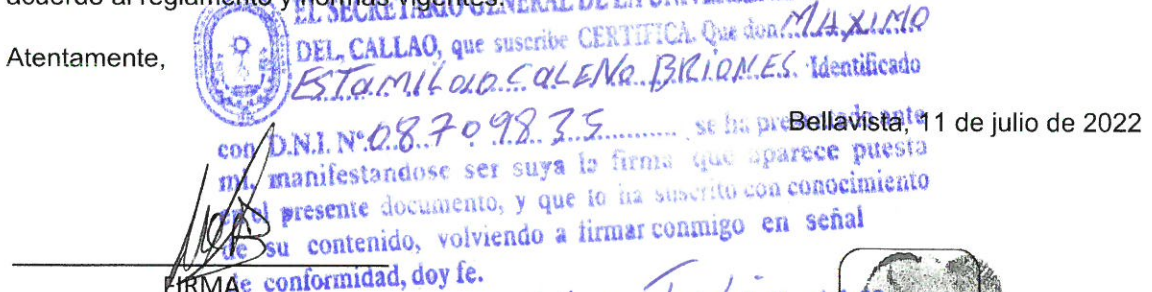 acuerdo al reglamento y normas vigentes.
EL SECRETARIO GENERAL DE LA
Atentamente,
DEL CALLAO, que suscribe CERTIFICA. Que don MAXIMO
ESTAMILOLO CALENO BRIONES. Identificado
con D.N.I. Nº 08709835 se ha presentado ante
Bellavista, 11 de julio de 2022
mi, manifestandose ser suya la firma que aparece puesta
en el presente documento, y que lo ha suscrito con conocimiento
de su contenido, volviendo a firmar conmigo en señal
de conformidad, doy fe.
FIRMA